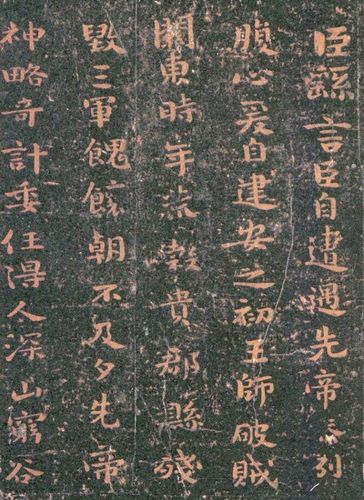 臣繇言臣自遭遇先帝忝列
腹心爰自建安之初王師破賊
關東時年荒穀貴郡縣殘
毀三軍餽饟朝不及夕先帝
神略奇計委任得人深山窮谷